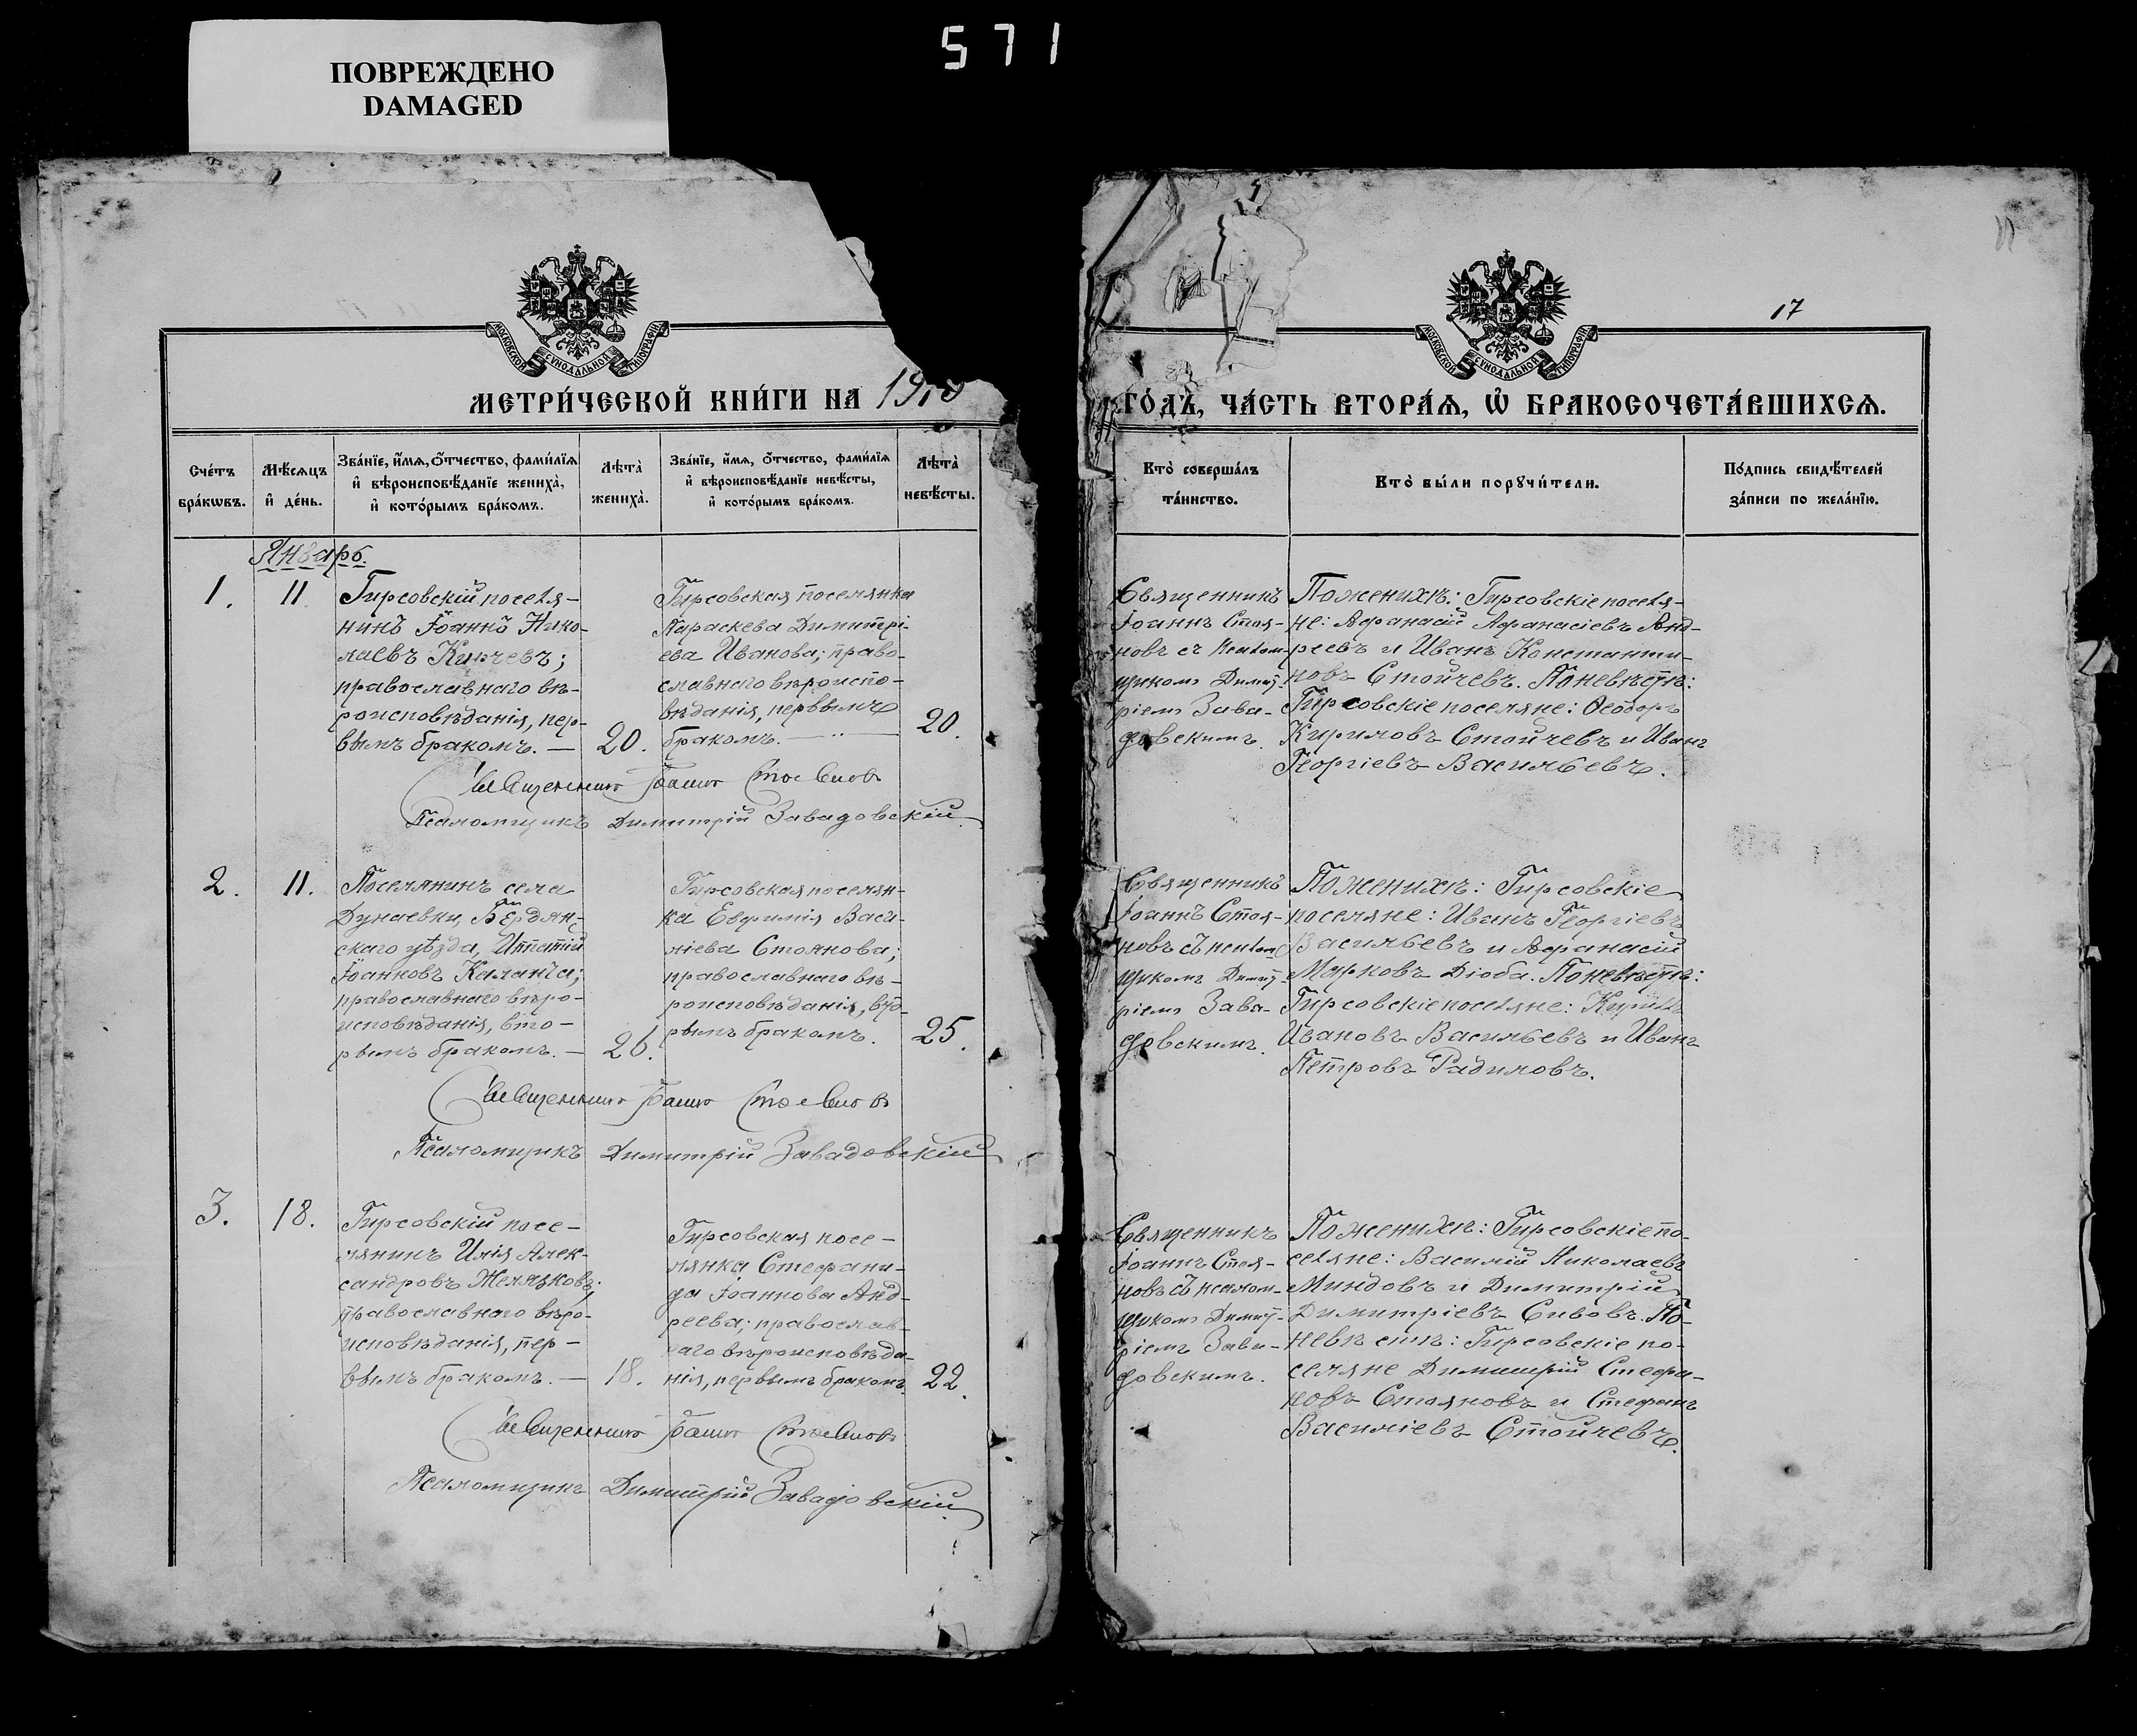 571
ПОВРЕЖДЕНО
DAMAGED
17
МОСКОВСКОЙ СУНОДАЛЬНОЙ ТИПОГРАФІИ
МОСКОВСКОЙ СУНОДАЛЬНОЙ ТИПОГРАФІИ
МЕТРИ́ЧЕСКОЙ КНИ́ГИ НА 1910
ГО́ДЪ, ЧА́СТЬ ВТОРА́Ѧ, Ѽ БРАКОСОЧЕТА́ВШИХСѦ.
Сче́тъ бра́кѡвъ.
Мѣ́сѧцъ и҆ де́нь.
Зва́нїе, и҆́мѧ, ѻ҆́тчество, фами́лїѧ
и҆ вѣроисповѣ́данїе жениха̀,
и҆ кото́рымъ бра́комъ.
Лѣта̀ жениха̀.
Зва́нїе, и҆́мѧ, ѻ҆́тчество, фами́лїѧ
и҆ вѣроисповѣ́данїе невѣ́сты,
и҆ кото́рымъ бра́комъ.
Лѣта̀ невѣ́сты.
Кто̀ соверша́лъ та́инство.
Кто̀ бы́ли порꙋчи́тели.
По́дпись свидѣ́телей за́писи по жела́нїю.
Январь.
1.
11.
Гирсовскій поселя-
нинъ Іоаннъ Нико-
лаевъ Кирчевъ;
православнаго вѣ-
роисповѣданія, пер-
вымъ бракомъ. —
20.
Гирсовская поселянка
Параскева Димитрі-
ева Иванова; право-
славнаго вѣроиспо-
вѣданія, первымъ
бракомъ. — " —
20.
Священникъ
Іоаннъ Стоя-
новъ съ псалом-
щикомъ Димит-
ріемъ Зава-
довскимъ.
По женихѣ: Гирсовскіе поселя-
не: Афанасій Афанасіевъ Анд-
реевъ и Иванъ Константи-
новъ Стойчевъ. По невѣстѣ:
Гирсовскіе поселяне: Ѳеодоръ
Кириловъ Стойчевъ и Иванъ
Георгіевъ Васильевъ.
Священникъ Іоаннъ Стояновъ
Псаломщикъ Димитрій Завадовскій
2.
11.
Поселянинъ села
Дунаевки, Бердян-
скаго уѣзда, Игнатій
Іоанновъ Каланча;
православнаго вѣро-
исповѣданія, вто-
рымъ бракомъ. —
26.
Гирсовская поселян-
ка Евфимія Васи-
ліева Стоянова;
православнаго вѣ-
роисповѣданія, вто-
рымъ бракомъ.
25.
Священникъ
Іоаннъ Стоя-
новъ съ псалом-
щикомъ Димит-
ріемъ Зава-
довскимъ.
По женихѣ: Гирсовскіе
поселяне: Иванъ Георгіевъ
Васильевъ и Афанасій
Марковъ Дюба. По невѣстѣ:
Гирсовскіе поселяне: Кириллъ
Ивановъ Васильевъ и Иванъ
Петровъ Радиловъ.
Священникъ Іоаннъ Стояновъ
Псаломщикъ Димитрій Завадовскій
3.
18.
Гирсовскій посе-
лянинъ Илія Алек-
сандровъ Желязковъ;
православнаго вѣро-
исповѣданія, пер-
вымъ бракомъ. —
18.
Гирсовская посе-
лянка Стефани-
да Іоаннова Анд-
реева; православ-
наго вѣроисповѣда-
нія, первымъ бракомъ.
22.
Священникъ
Іоаннъ Стоя-
новъ съ псалом-
щикомъ Димит-
ріемъ Зава-
довскимъ.
По женихѣ: Гирсовскіе по-
селяне: Василій Николаевъ
Миндовъ и Димитрій
Димитріевъ Сивовъ. По
невѣстѣ: Гирсовскіе по-
селяне Димитрій Стефа-
новъ Стояновъ и Стефанъ
Василіевъ Стойчевъ.
Священникъ Іоаннъ Стояновъ
Псаломщикъ Димитрій Завадовскій